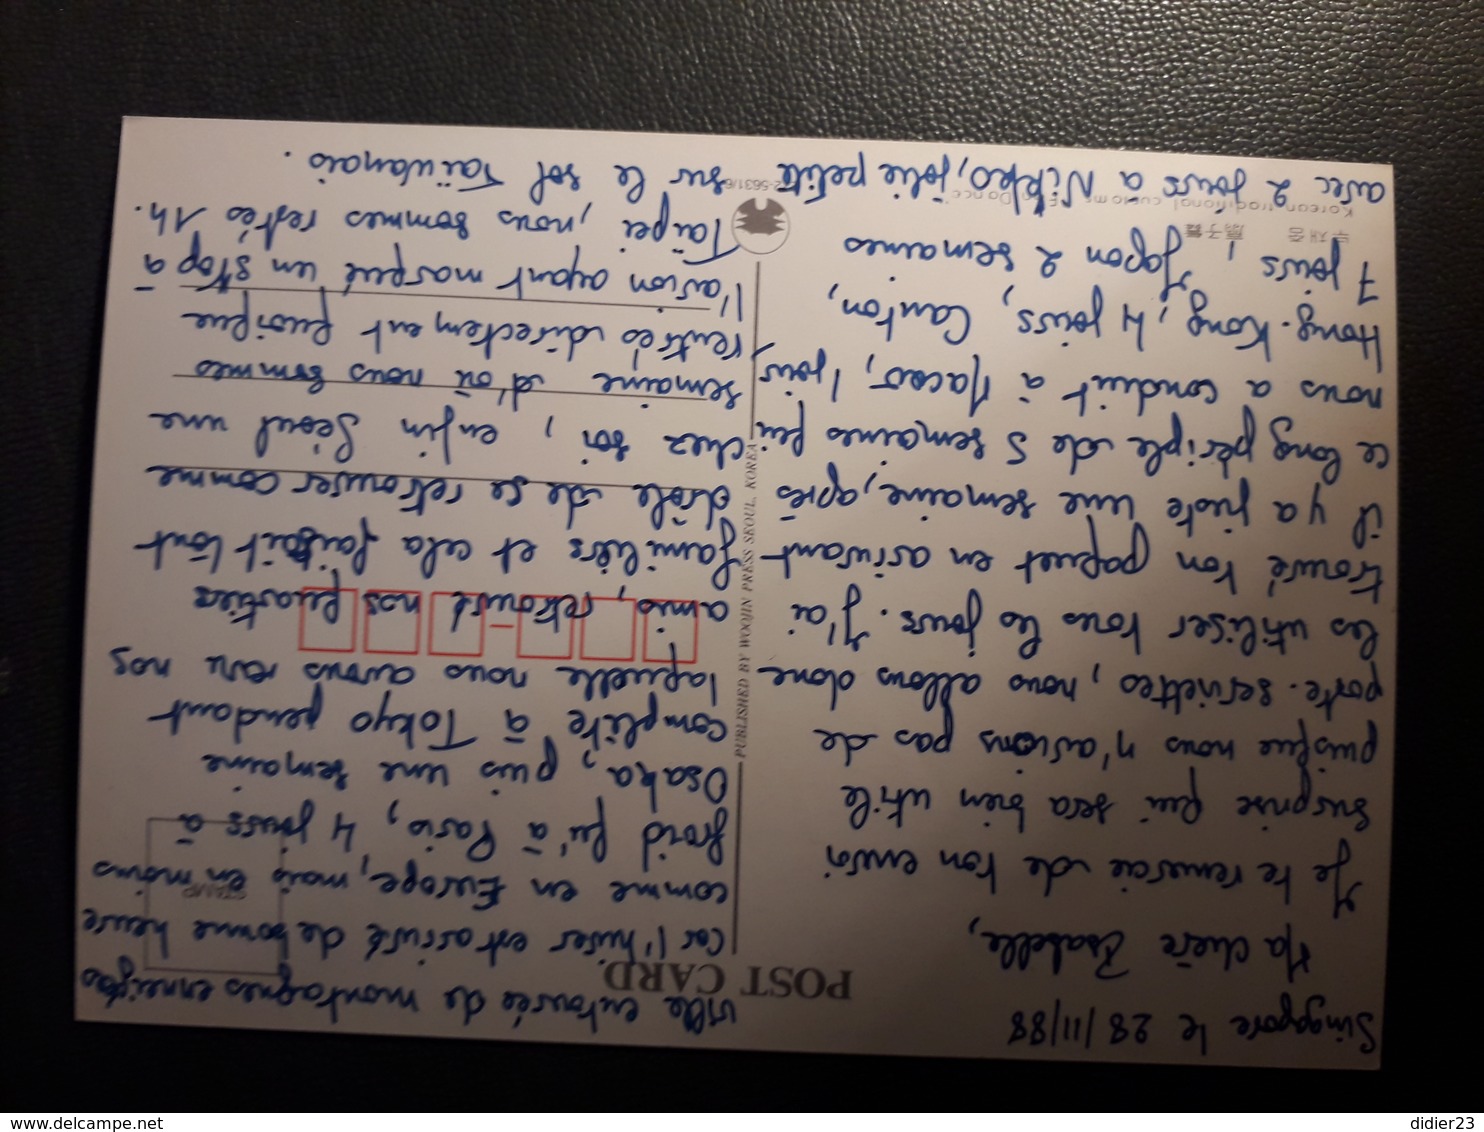 Singapore le 28/11/88
Ma chère Isabelle,
Je te remercie de ton envoi
surprise qui sera bien utile
puisque nous n'avions pas de
porte-serviettes, nous allons donc
les utiliser tous les jours. J'ai
trouvé ton paquet en arrivant
il y a juste une semaine, après
ce long périple de 5 semaines qui
nous a conduit à Macao, 1 jour,
Hong-Kong, 4 jours, Canton,
7 jours, Japon 2 semaines
avec 2 jours à Nikko, jolie petite
ville entourée de montagnes enneigées
car l'hiver est arrivé de bonne heure
comme en Europe, mais en moins
froid qu'à Paris, 4 jours à
Osaka, puis une semaine
complète à Tokyo pendant
laquelle nous avons revu nos
amis, retrouvé nos quartiers
familiers et cela faisait tout
drôle de se retrouver comme
chez soi, enfin Séoul une
semaine d'où nous sommes
rentrés directement puisque
l'avion ayant manqué un stop à
Taïpei, nous sommes restés 1h.
sur le sol Taïwanais.
POST CARD
STAMP
PUBLISHED BY WOOJIN PRESS SEOUL, KOREA
부채춤 扇子舞
Korean traditional customs
Dance"
didier23